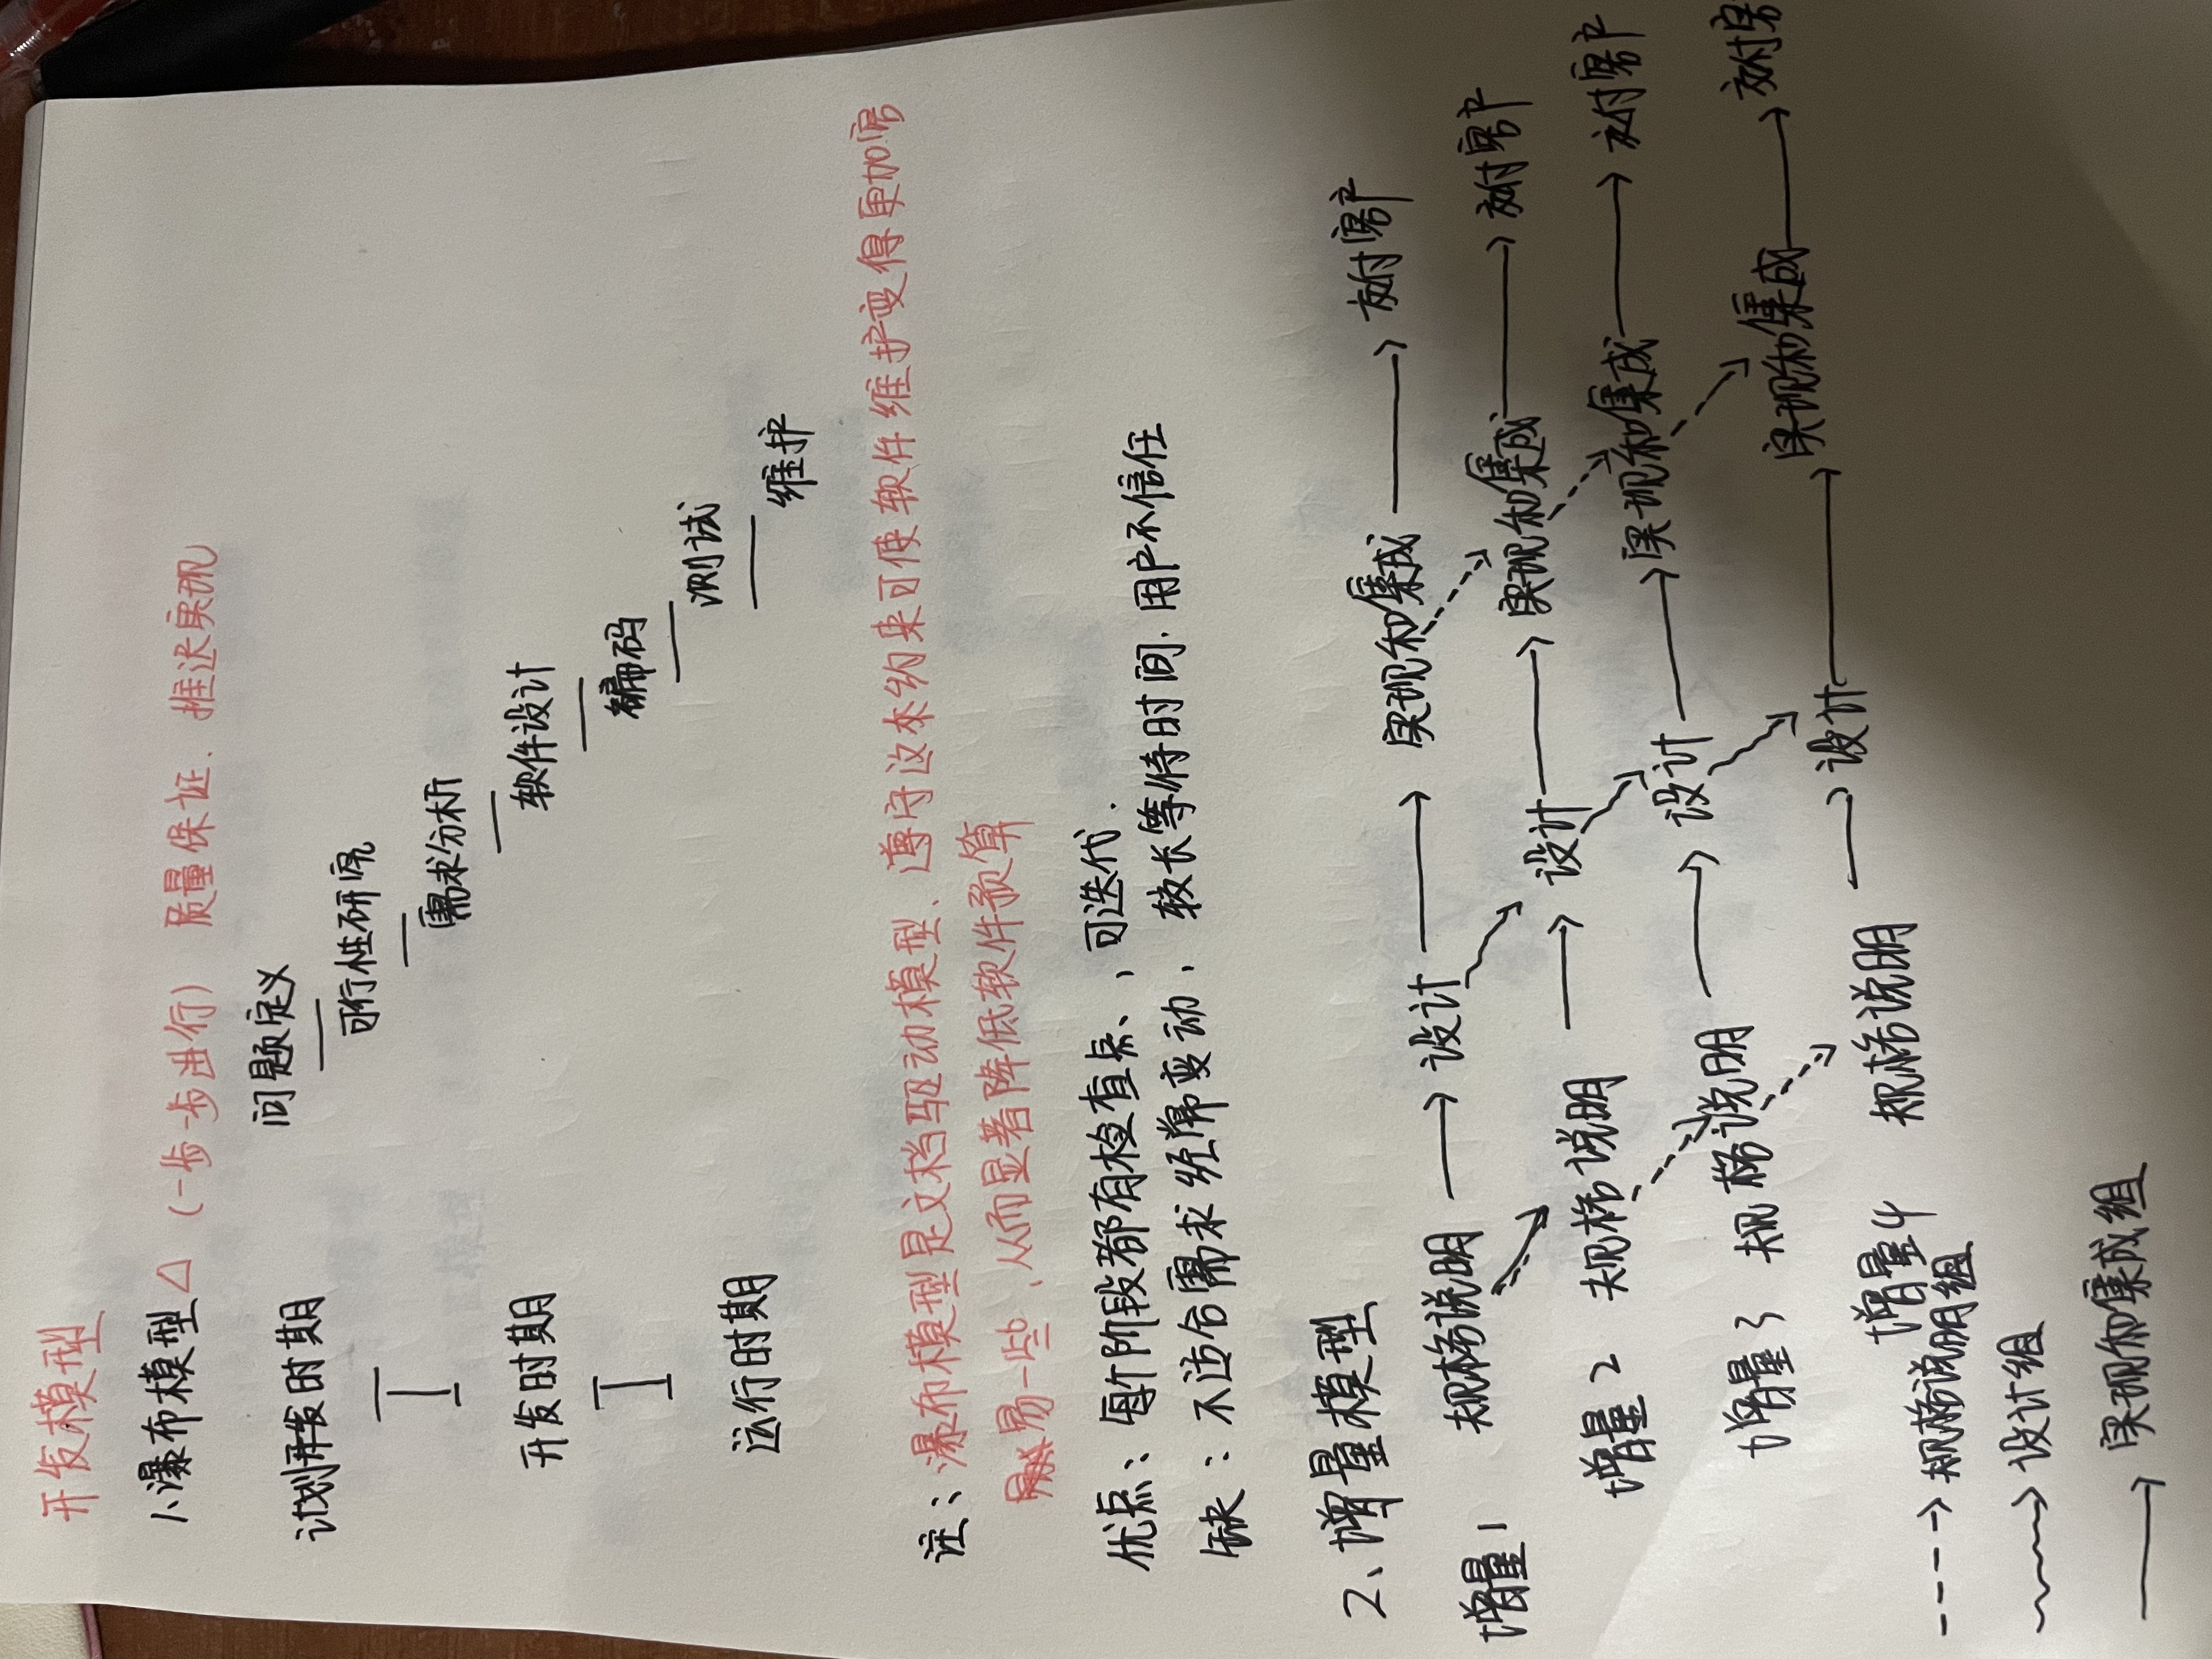 开发模型
1、瀑布模型 △ (一步一步进行) 质量保证、推迟实现
问题定义
计划开发时期 可行性研究
需求分析
开发时期 软件设计
编码
测试
运行时期 维护
注:、瀑布模型是文档驱动模型、遵守这本约来可使软件维护变得更加容
易一些,从而显著降低软件预算
优点:、每个阶段都有检查点、,可迭代.
缺:不适合需求经常变动,较长等待时间.用户不信任
2、增量模型
增量1 规格说明 → 设计 → 实现和集成 → 交付客户
增量2 规格说明 → 设计 → 实现和集成 → 交付客户
增量3 规格说明 → 设计 → 实现和集成 → 交付客户
增量4 规格说明 → 设计 → 实现和集成 → 交付客
---→ 规格说明组
~~→ 设计组
→ 实现和集成组